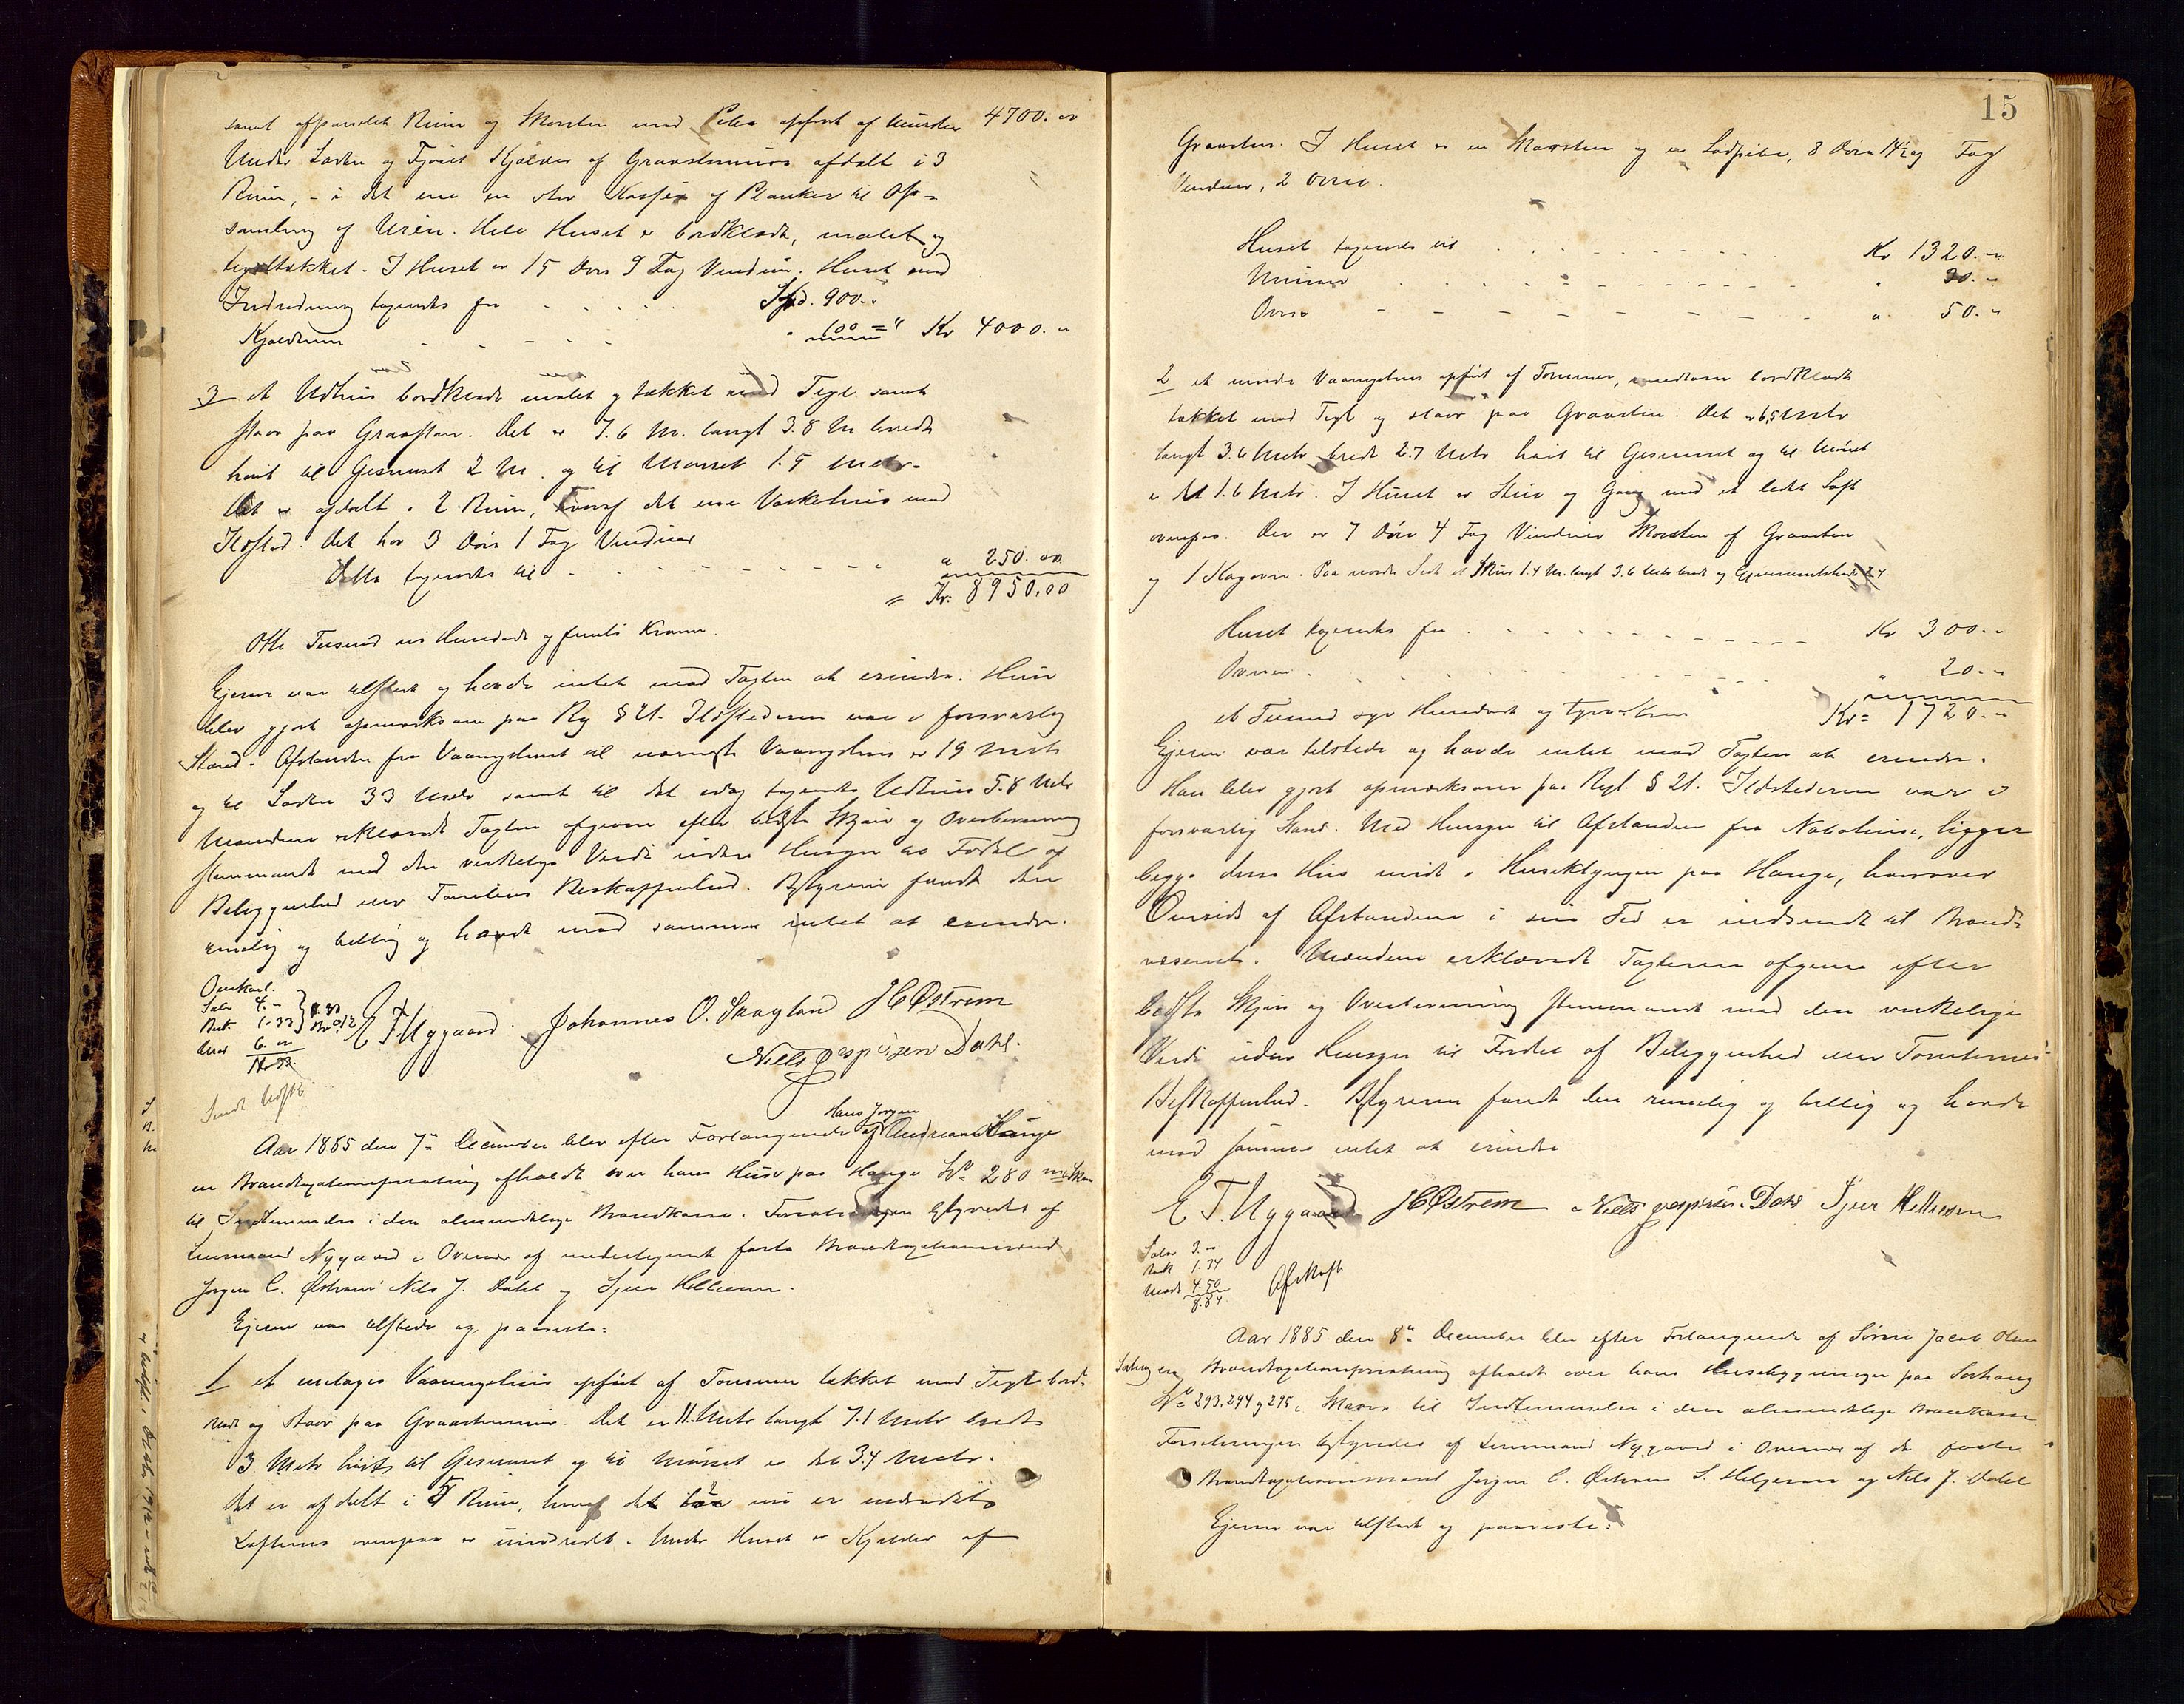 samt afpandet Rum og Skorsten med Piber opført af Mursten 4700. "
Under Laden og Fjøset Kjælder af Graastensmur afdelt i 3
Rum, - i det ene en stor Kasse af Planker til Op-
samling af Urin. Hele Huset er bordklædt, malet og
tegltækket. I Huset er 15 Døre 9 Fag Vinduer. Huset med
Indredning taxeredes for Spd. 900. "
Kjælderen " 100 = " Kr 4000. "
3 et Udhus bordklædt malet og tækket med Tegl samt
staar paa Graasten. Det er 7.6 M. langt 3.8 M bredt
høit til Gesimset 2 M. og til Mønset 1.9 Meter.
Det er afdelt i 2 Rum, hvoraf det ene Vaskehus med
Ildsted. Det har 3 Døre 1 Fag Vinduer
Dette taxeredes til " 250. 00
= Kr. 8950.00
Otte Tusend ni Hundrede og femti Kroner.
Ejeren var tilstede og havde intet mod Taxten at erindre. Hun
blev gjort opmærksom paa Rg § 21. Ildstederne var i forsvarlig
Stand. Afstanden fra Vaaningshuset til nærmeste Vaaningshus er 19 Meter
og til Laden 33 Meter samt til det idag taxerede Udhus 5.8 Meter
Mændene erklærede Taxten afgiven efter bedste Skjøn og Overbevisning
stemmende med den virkelige Værdi uden Hensyn til Fordel af
Beliggenhed eller Tomtens Beskaffenhed. Bestyreren fandt den
rimelig og billig og havde mod samme intet at erindre.
Omkost.
Salær 4. -
Besk 1.33
Mænd 6. 00
11.33
E T Nygaard. Johannes O. Skogland J C Østrem
Niels Jespersen Dahl.
Sendt Udskr
Hans Jørgen
Aar 1885 den 7de December blev efter Forlangende af Andreas Hauge
en Brandtaxationsforretning afholdt over hans Huse paa Hauge Lb No 280
til Indlemmelse i den almindelige Brandkasse. Forretningen bestyredes af
Lensmand Nygaard i Overvær af undertegnede faste Brandtaxationsmænd
Jørgen C. Østrem Nils J. Dahl og Sjur Helliesen.
Ejeren var tilstede og paaviste:
1 et enetages Vaaningshus opført af Tømmer tækket med Tegl bord-
klædt og staar paa Graastensmur. Det er 11. Meter langt 7.1 Meter bredt
3 Meter høit til Gesimset og til Mønset er det 3.4 Meter.
Det er afdelt i 5 Rum, hvoraf det ene er uindredet
Lofterne ovenpaa er uindredt. Under Huset er Kjælder af
15
Graasten. I Huset er en Skorsten og en Ladpibe, 8 Døre 14½ Fag
Vinduer, 2 Ovne.
Huset taxeredes til Kr 1320. "
Muren " 30. "
Ovne " 50. "
2 et mindre Vaaningshus opført af Tømmer, bordklædt
tækket med Tegl og staar paa Graasten. Det er 6,5 Meter
langt 3.6 Meter bredt 2.7 Meter høit til Gesimset og til Mønset
er det 1.6 Meter. I Huset er Stue og Gang med et lidet Loft
ovenpaa. Der er 7 Døre 4 Fag Vinduer Skorsten af Graasten
og 1 Kagovn. Paa nordre Side et Skur 1.4 M. langt 3.6 Meter bredt og Gjennemsnitshøide 2.4
Huset taxeredes for Kr 300. "
Ovnen " 20. "
et Tusend syv Hundrede og tyve Kroner Kr = 1720. "
Ejeren var tilstede og havde intet mod Taxten at erindre.
Han blev gjort opmærksom paa Regl. § 21. Ildstederne var i
forsvarlig Stand. Med Hensyn til Afstanden fra Nabohuse, ligger
begge disse Huse midt i Huseklyngen paa Hauge, hvorover
Omrids af Afstandene i sin Tid er indsendt til Brand-
væsenet. Mændene erklærede Taxterne afgivne efter
bedste Skjøn og Overbevisning stemmende med den virkelige
Værdi uden Hensyn til Fordel af Beliggenhed eller Tomternes
Beskaffenhed. Bestyreren fandt den rimelig og billig og havde
mod samme intet at erindre
E T. Nygaard J C Østrem Niels Jespersen Dahl Sjur Helliesen
Salær 3. "
Besk 1.34
Mænd 4.50
8.84
Afskrift
Aar 1885 den 8de December blev efter Forlangende af Søren Jacob Olsen
en Brandtaxationsforretning afholdt over hans Husebygninger paa
Lb No 293, 294 og 295 i til Indlemmelse i den almindelige Brandkasse
Forretningen bestyredes af Lensmand Nygaard i Overvær af de faste
Brandtaxationsmænd Jørgen C. Østrem S. Helgesen og Nils J. Dahl
Ejeren var tilstede og paaviste: